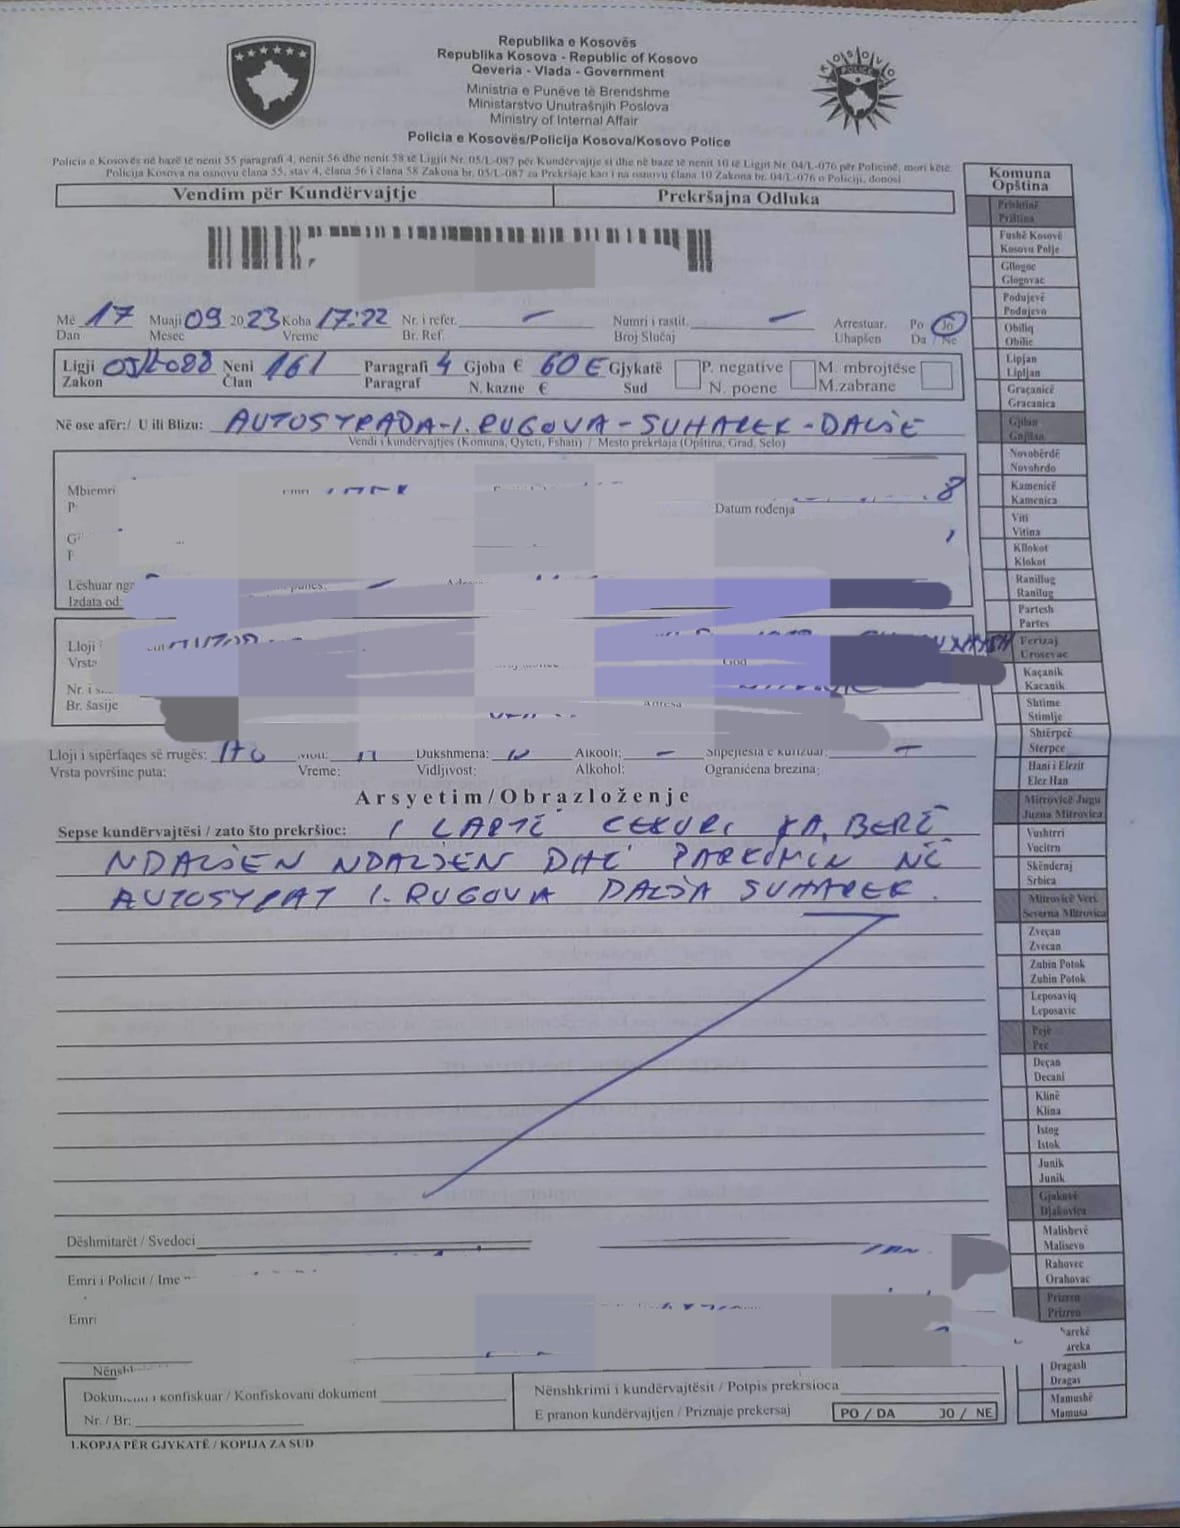 Republika e Kosovës
Republika Kosova - Republic of Kosovo
Qeveria - Vlada - Government
Ministria e Punëve të Brendshme
Ministarstvo Unutrašnjih Poslova
Ministry of Internal Affair
Policia e Kosovës/Policija Kosova/Kosovo Police
KOSOVO
POLICE
Policia e Kosovës në bazë të nenit 55 paragrafi 4, nenit 56 dhe nenit 58 të Ligjit Nr. 05/L-087 për Kundërvajtje si dhe në bazë të nenit 10 të Ligjit Nr. 04/L-076 për Policinë, mori këtë:
Policija Kosova na osnovu člana 55, stav 4, člana 56 i člana 58 Zakona br. 05/L-087 za Prekršaje kao i na osnovu člana 10 Zakona br. 04/L-076 o Policiji, donosi
Vendim për Kundërvajtje Prekršajna Odluka
Më 17 Muaji 09 2023 Koha 17:22 Nr. i refer. Numri i rastit. Arrestuar. Po Jo
Dan Mesec Vreme Br. Ref. Broj Slučaj Uhapšen Da / Ne
Ligji 05/L-088 Neni 161 Paragrafi 4 Gjoba € 60 € Gjykatë P. negative M. mbrojtëse
Zakon Član Paragraf N. kazne € Sud N. poene M.zabrane
Në ose afër:/ U ili Blizu: AUTOSTRADA-I.RUGOVA-SUHAREK-DALJE
Vendi i kundërvajtjes (Komuna, Qyteti, Fshati) / Mesto prekršaja (Opština, Grad, Selo)
Mbiemri 8
Datum rođenja
Lëshuar nga
Izdata od:
Lloji
Vrsta
Nr. i
Br. šasije
Lloji i sipërfaqes së rrugës: Dukshmëria: Alkooli:
Vrsta površine puta: Vreme: Vidljivost: Alkohol: Ograničena brezina:
Arsyetim/Obrazloženje
Sepse kundërvajtësi / zato što prekršioc: I LARTË CEKURI KA BERË
NDALJEN NDALJEN DHE PARKIMIN NË
AUTOSTRAT I.RUGOVA DALJA SUHAREK.
Dëshmitarët / Svedoci
Emri i Policit / Ime
Emri
Nënsh
Dokumenti i konfiskuar / Konfiskovani dokument
Nr. / Br:
Nënshkrimi i kundërvajtësit / Potpis prekrsioca
E pranon kundërvajtjen / Priznaje prekersaj PO / DA JO / NE
1.KOPJA PËR GJYKATË / KOPIJA ZA SUD
Komuna
Opština
Prishtinë
Priština
Fushë Kosovë
Kosovo Polje
Gllogoc
Glogovac
Podujevë
Podujevo
Obiliq
Obilic
Lipjan
Lipljan
Graçanicë
Gracanica
Gjilan
Gnjilan
Novobërdë
Novobrdo
Kamenicë
Kamenica
Viti
Vitina
Kllokot
Klokot
Ranillug
Ranilug
Partesh
Partes
Ferizaj
Urosevac
Kaçanik
Kacanik
Shtime
Stimlje
Shtërpcë
Sterpce
Hani i Elezit
Elez Han
Mitrovicë Jugu
Juzna Mitrovica
Vushtrri
Vucitrn
Skënderaj
Srbica
Mitrovicë Veri
Severna Mitrovica
Zveçan
Zvecan
Zubin Potok
Zubin Potok
Leposaviq
Leposavic
Pejë
Pec
Deçan
Decani
Klinë
Klina
Istog
Istok
Junik
Junik
Gjakovë
Djakovica
Malishevë
Malisevo
Rahovec
Orahovac
Prizren
Prizren
harekë
areka
Dragash
Dragas
Mamushë
Mamusa